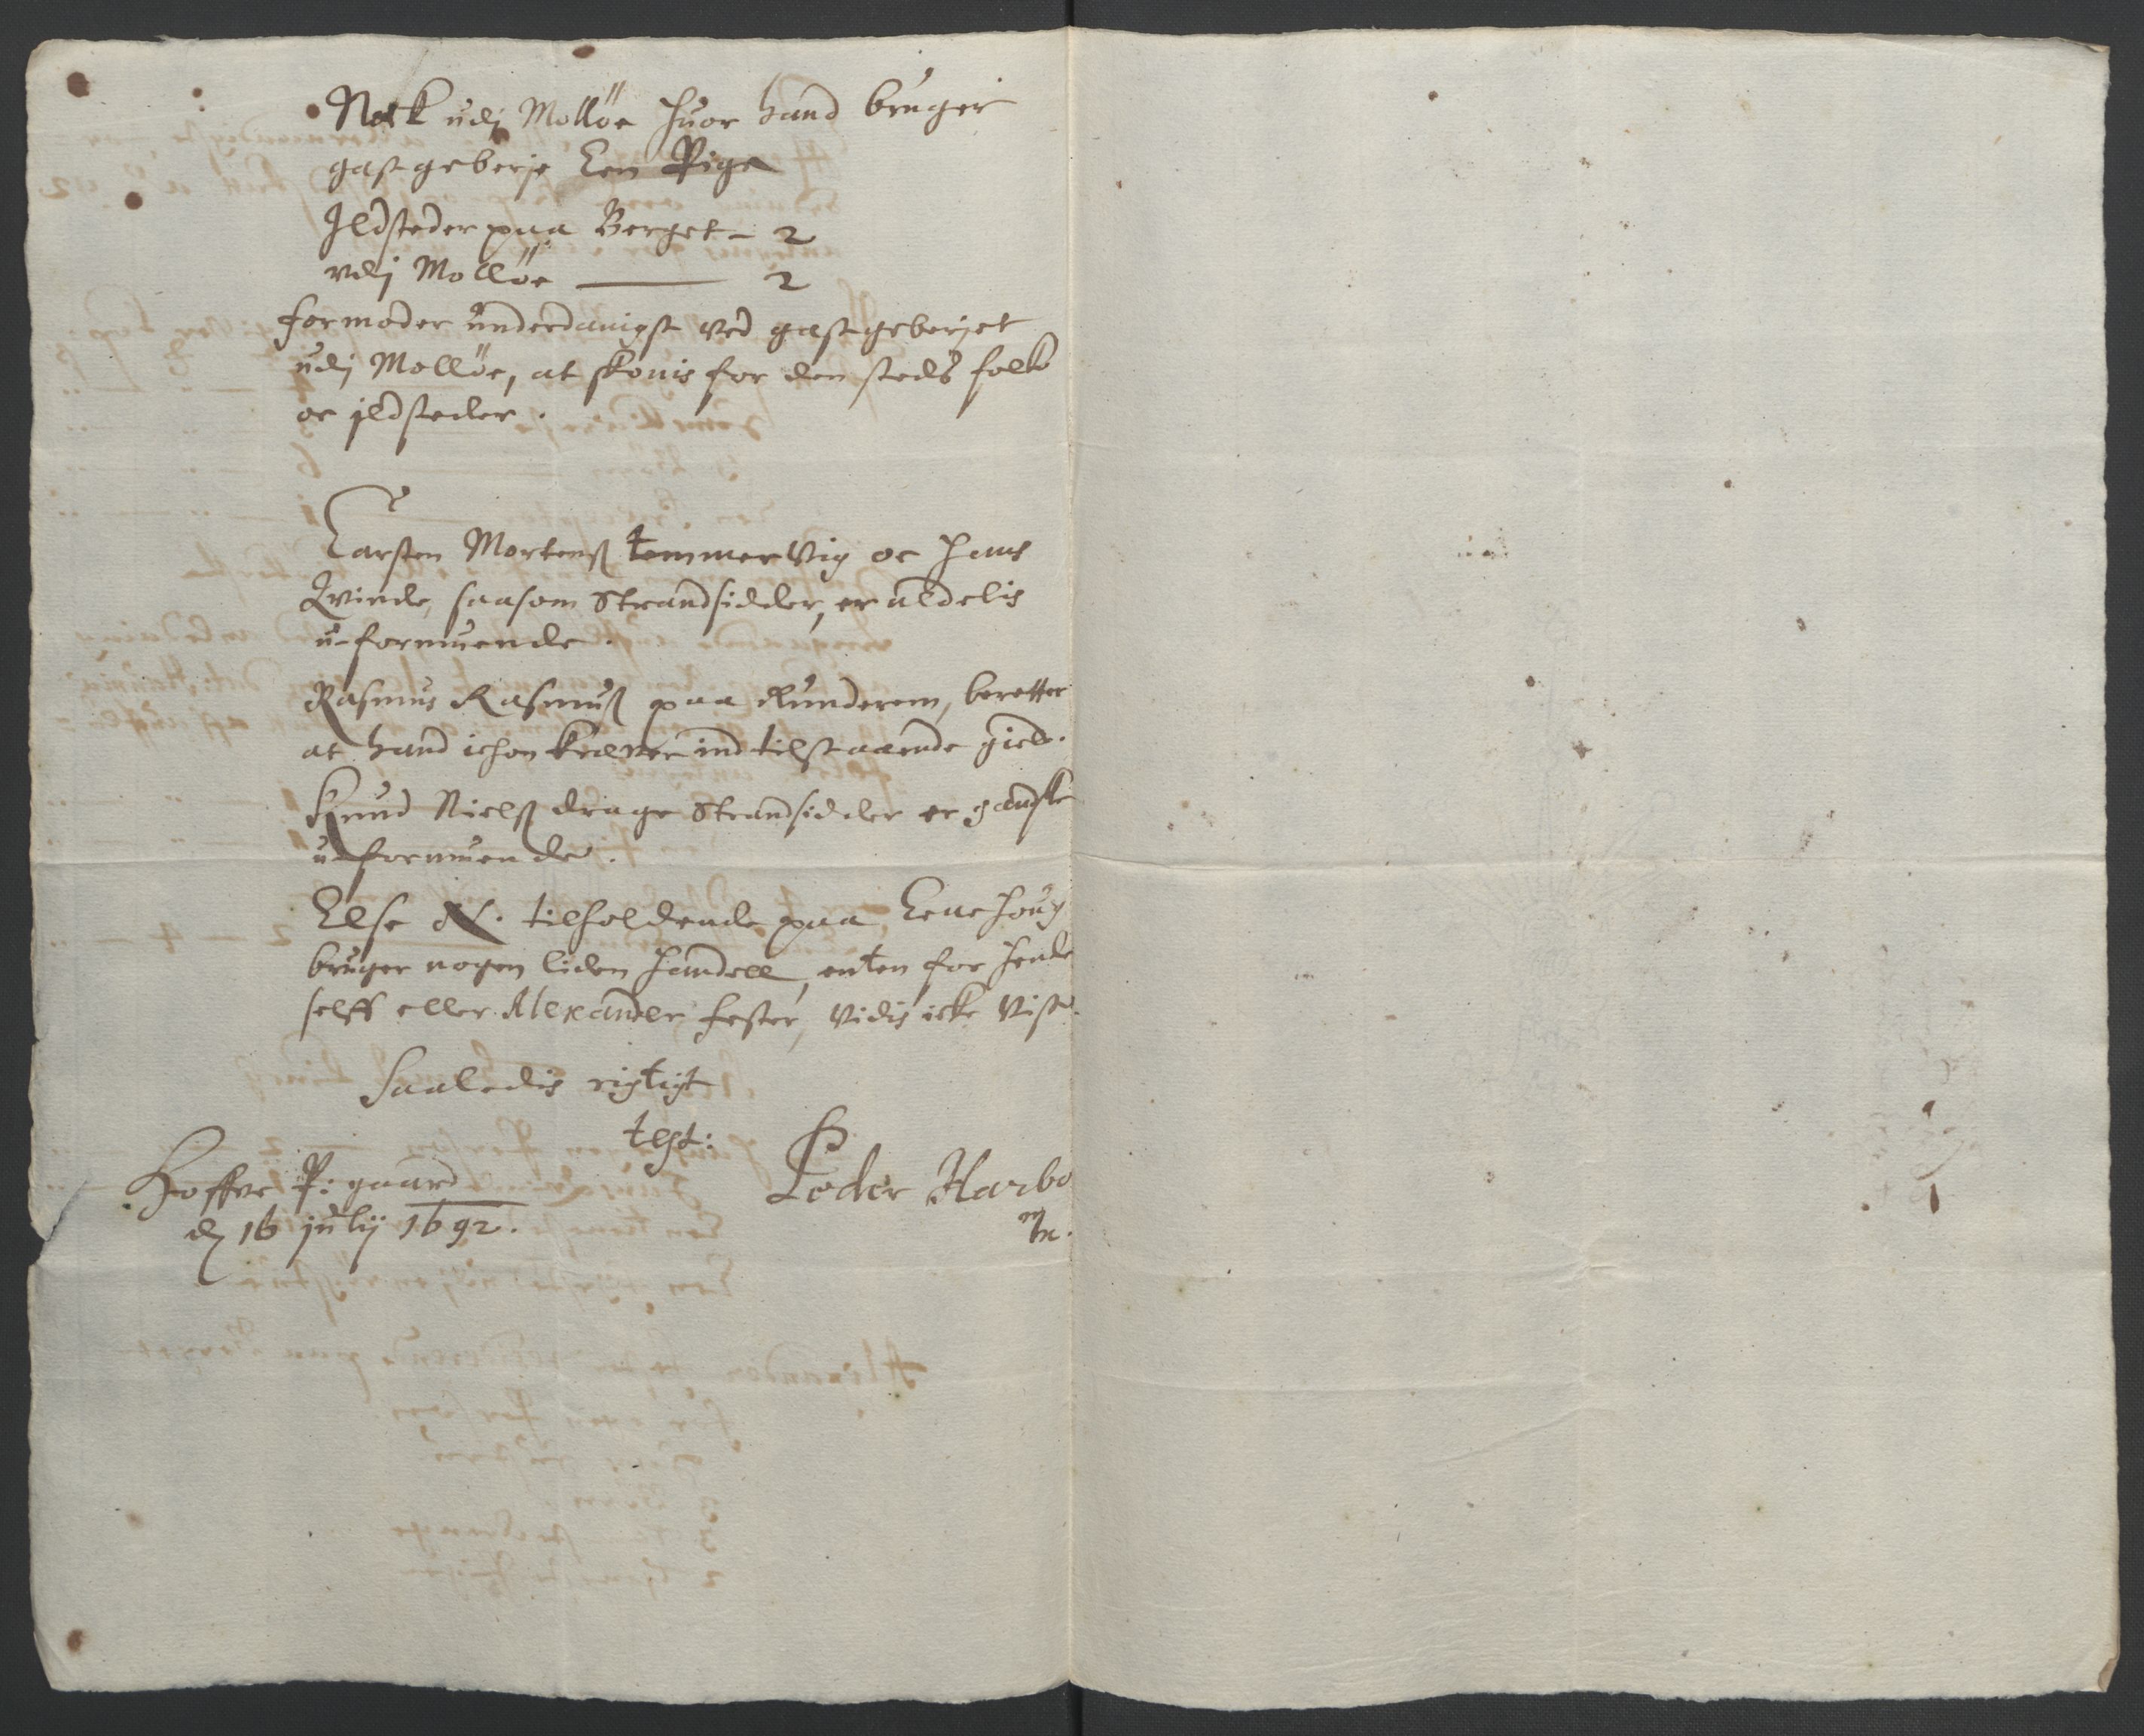 Nock udj Mollöe huor hand bruger
gastgeberje Een Pige
Ildsteder paa Berget – 2
udj Mollöe — 2
formoder underdanigst ved gastgeberjet
udj Mollöe, at skonis for den steds folk
oc ildsteder.
Carsten Mortenß temmerVig oc hans
Qvinde, saasom Strandsidder, er aldelis
u-formuende.
Rasmus Rasmuß paa Runderem, beretter
at hand ichon kræver ind tilstaaende gield.
Knud Nielß drage Strandsidder er gandske
u-formuende.
Else N. tilholdende paa
bruger nogen liden handell, enten for hende
selff eller Alexander fester, Vidis icke Vist.
Saaledis rigtigt
test:
Hoffve P: gaard
d 16 julij 1692.
Peder Harbo